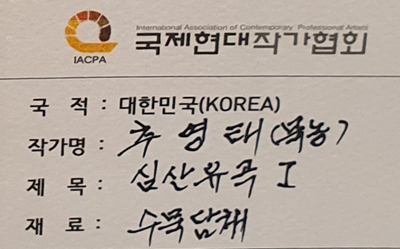 International Association of Contemporary Professional Artists
국제현대작가협회
IACPA
국 적 : 대한민국(KOREA)
작가명 : 추영태(묵농)
제 목 : 심산유곡 I
재 료 : 수묵담채